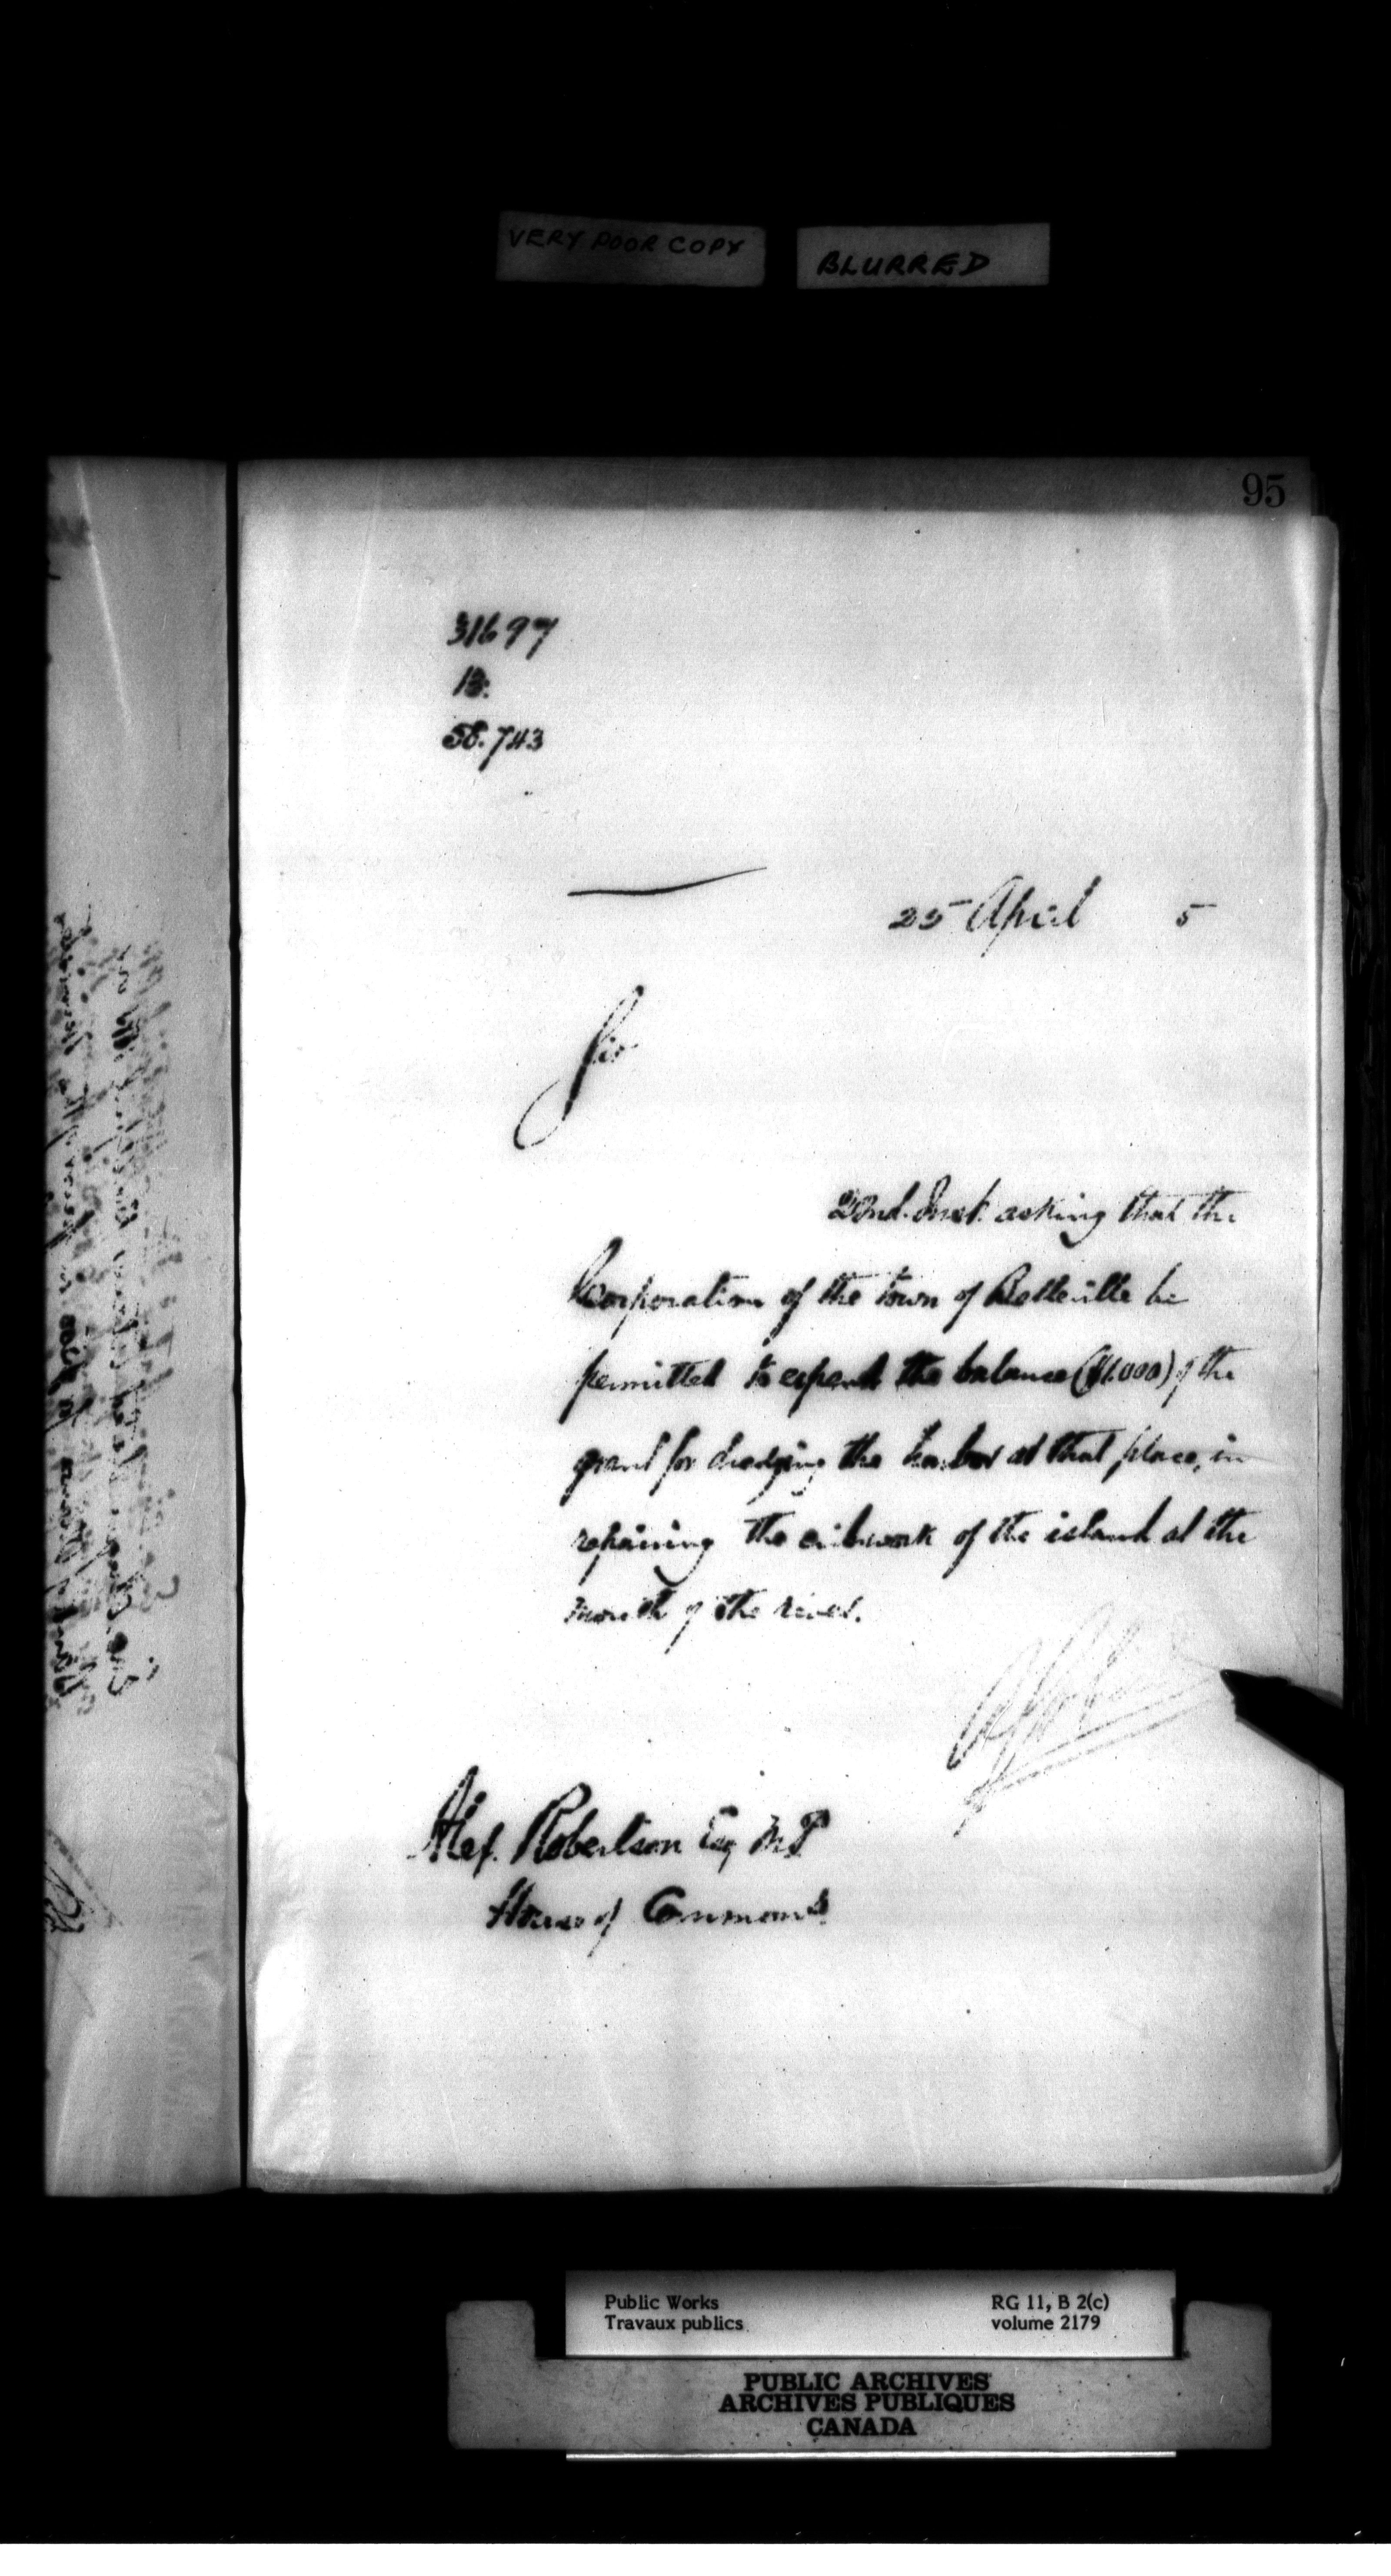 VERY POOR COPY
BLURRED
95
31697
B.
58.743
25 April 5
Sir
22nd. Inst. asking that the
Corporation of the town of Belleville be
permitted to expend the balance ($1.000) of the
grant for dredging the harbor at that place, in
repairing the cribwork of the island at the
mouth of the river.
Alex. Robertson Esq M.P.
House of Commons
Public Works
Travaux publics
RG 11, B 2(c)
volume 2179
PUBLIC ARCHIVES
ARCHIVES PUBLIQUES
CANADA